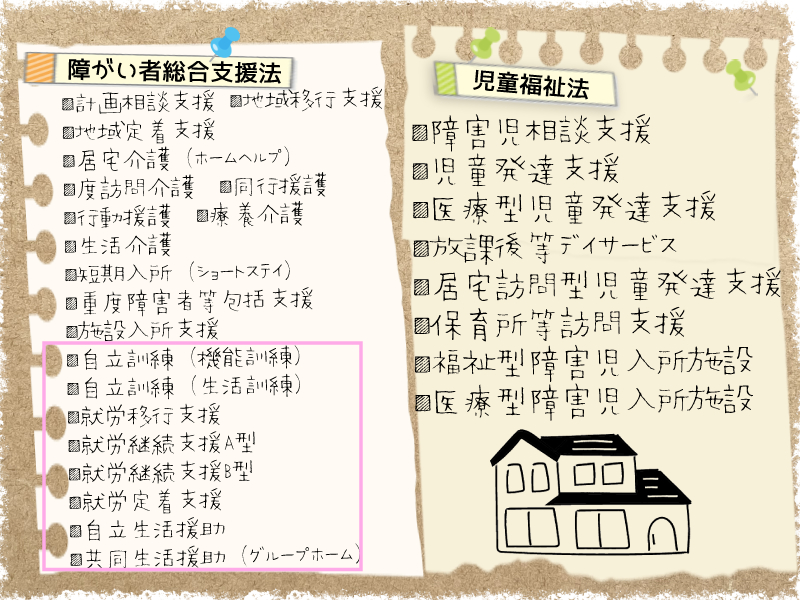 障がい者総合支援法
▨計画相談支援 ▨地域移行支援
▨地域定着支援
▨居宅介護（ホームヘルプ）
▨度訪問介護 ▨同行援護
▨行動援護 ▨療養介護
▨生活介護
▨短期入所（ショートステイ）
▨重度障害者等包括支援
▨施設入所支援
▨自立訓練（機能訓練）
▨自立訓練（生活訓練）
▨就労移行支援
▨就労継続支援A型
▨就労継続支援B型
▨就労定着支援
▨自立生活援助
▨共同生活援助（グループホーム）
児童福祉法
▨障害児相談支援
▨児童発達支援
▨医療型児童発達支援
▨放課後等デイサービス
▨居宅訪問型児童発達支援
▨保育所等訪問支援
▨福祉型障害児入所施設
▨医療型障害児入所施設